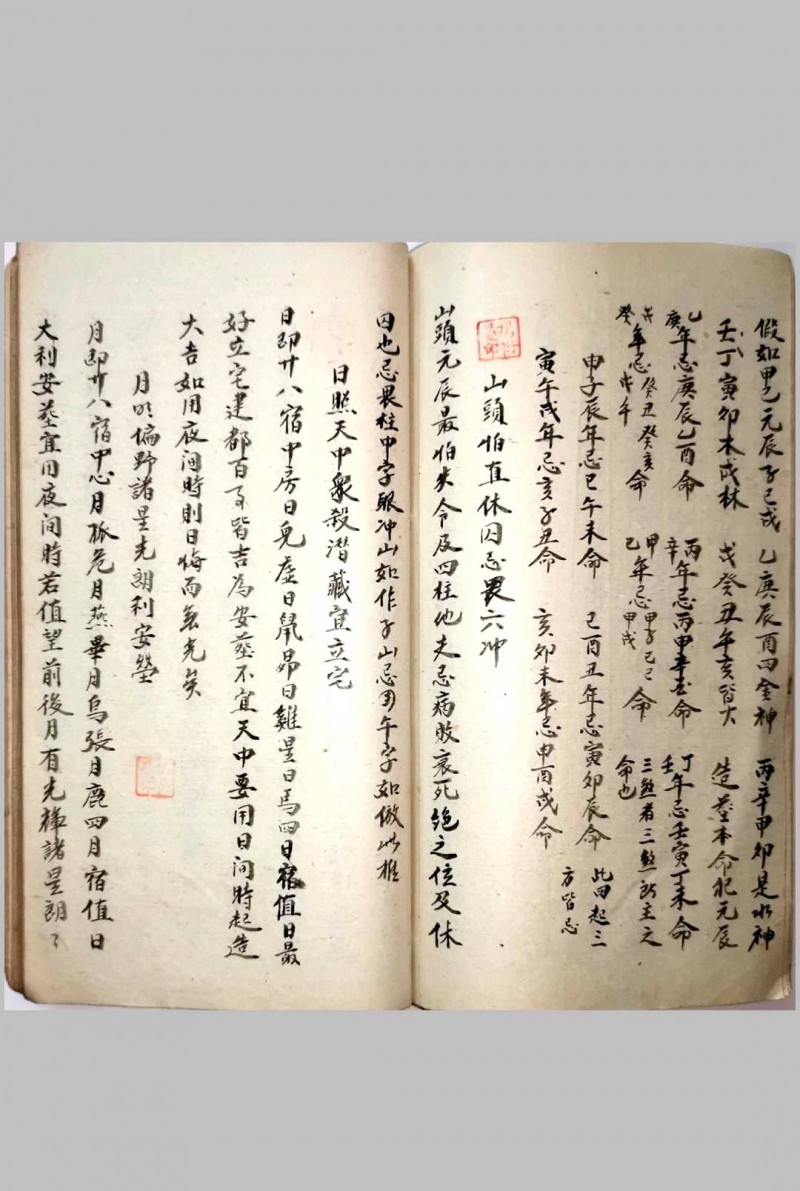 假如甲己元辰子巳戌 乙庚辰酉四金神 丙辛申卯是水神
壬丁寅卯木戌林 戊癸丑午亥皆火 造葬本命犯元辰
乙庚年忌庚辰乙酉命 丙辛年忌丙申辛卯命 丁壬年忌壬寅丁未命
戊癸年忌癸丑癸亥戊午命 甲己年忌甲子己巳甲戌命 三煞者三煞所主之命也
申子辰年忌巳午未命 巳酉丑年忌寅卯辰命
寅午戌年忌亥子丑命 亥卯未年忌申酉戌命 此田起三方皆忌
山頭怕直休囚忌畏六冲
山頭元辰最怕失令及四柱他夫忌病敗衰死絕之位及休
囚也忌畏柱中字眼冲山如作子山忌用午字如倣此推
日照天中衆殺潛藏宜立宅
日即廿八宿中房日兔虛日鼠昴日雞星日馬四日宿值日最
好立宅建都百事皆吉為安葬不宜天中要用日间時起造
大吉如用夜间時則日悔而無光矣
月明偏野諸星光朗利安塋
月即廿八宿中心月狐危月燕畢月烏張月鹿四月宿值日
大利安葬宜用夜间時若值望前後月有光輝諸星朗々